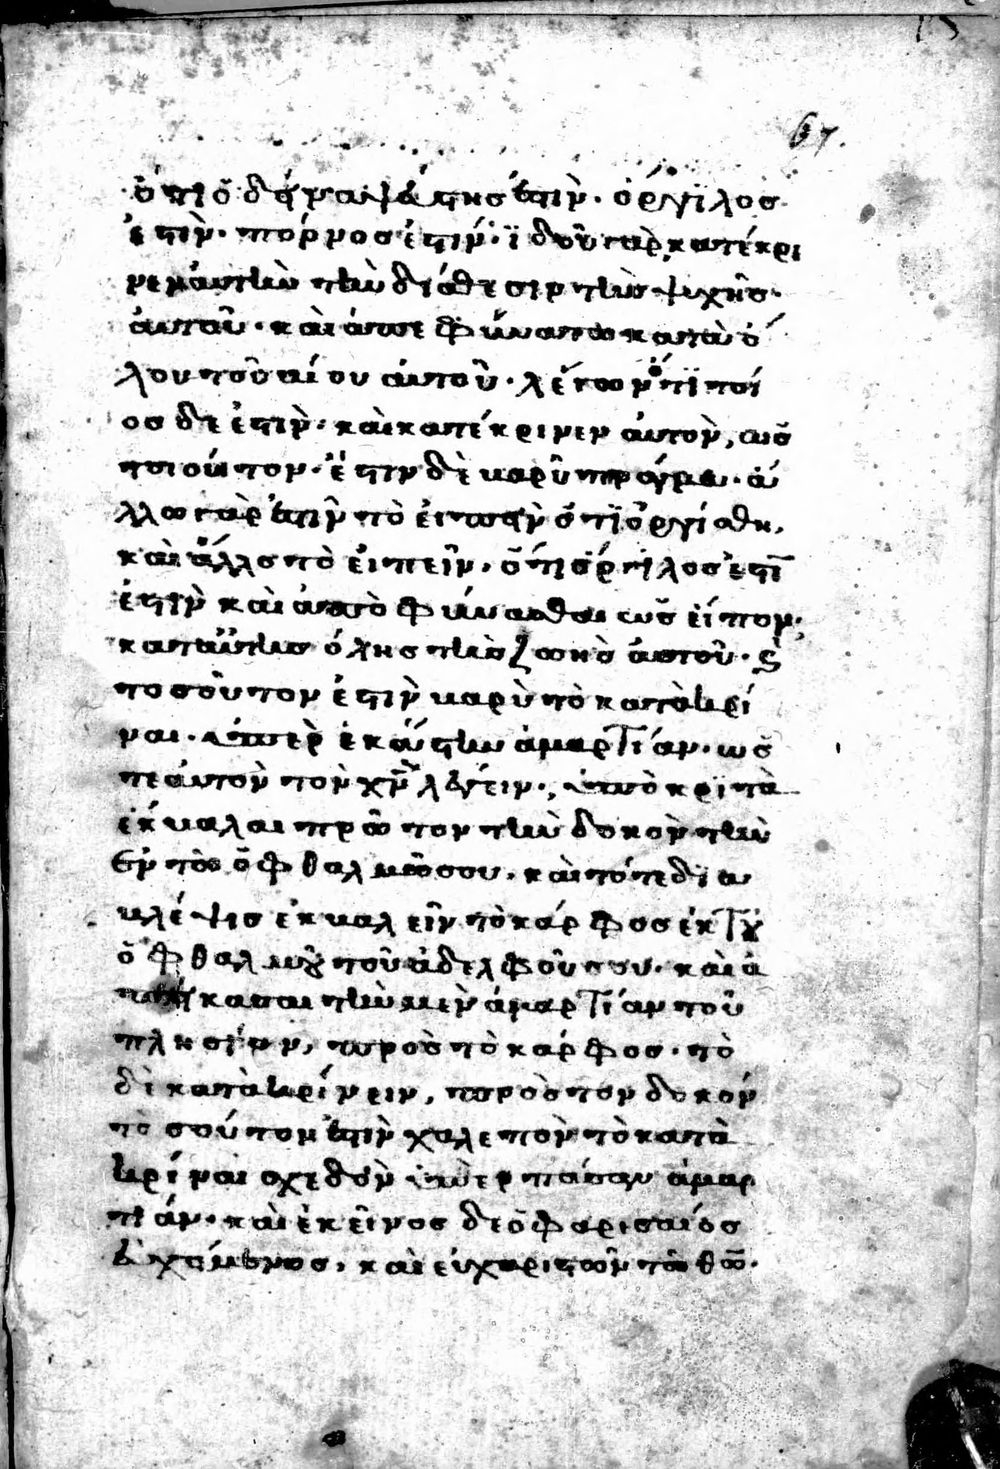 67.
ὅτι ὁ δεῖνα ψεύστης ἐστὶν· ὀργίλος
ἐστὶν· πόρνος ἐστίν· ἰδοῦ γὰρ, κατέκρι
νεν αὐτὴν τὴν διάθεσιν τῆς ψυχῆς
αὐτοῦ· καὶ ἀπεφήνατο κατὰ ὅ
λου τοῦ βίου αὐτοῦ· λέγων ὅτι τοί
οσδε ἐστὶν· καὶ κατέκρινεν αὐτὸν, ὡς
τοιοῦτον· ἔστιν δὲ βαρῦ πράγμα· ἄ
λλο γὰρ ἐστὶν τὸ εἰπεῖν ὅτι ὀργίσθη,
καὶ ἄλλο τὸ εἰπεῖν· ὅτι ὀργίλος ἐστὶ
ἐστὶν καὶ ἀποφήνασθαι ὡς εἶπον,
κατὰ τῆς ὅλης τῆς ζωῆς αὐτοῦ· ϛ
τοσοῦτον ἐστὶν βαρὺ τὸ κατακρί
ναι· ὑπὲρ ἑκάστην ἁμαρτίαν· ὡς
τε αὐτὸν τὸν χν λέγειν, ὑποκριτὰ
ἔκβαλαι πρῶτον τὴν δοκὸν τὴν
ἐν τῶ ὀφθαλμῶ σου· καὶ τότε δια
βλέψις ἐκβαλεῖν τὸ κάρφος ἐκ τοῦ
ὀφθαλμοῦ τοῦ ἀδελφοῦ σου· καὶ ἀ
πείκασαι τὴν μὲν ἁμαρτίαν τοῦ
πλησίον, πρὸς τὸ κάρφος· τὸ
δὲ κατακρίνειν, πρὸς τὸν δοκόν
τοσούτον ἐστὶν χαλεπὸν τὸ κατα
κρίναι σχεδὸν ὑπὲρ πάσαν ἁμαρ
τίαν· καὶ ἐκεῖνος δὲ ὁ φαρισαίος
εὐχόμενος, καὶ εὐχαριστῶν τῶ θῶ·